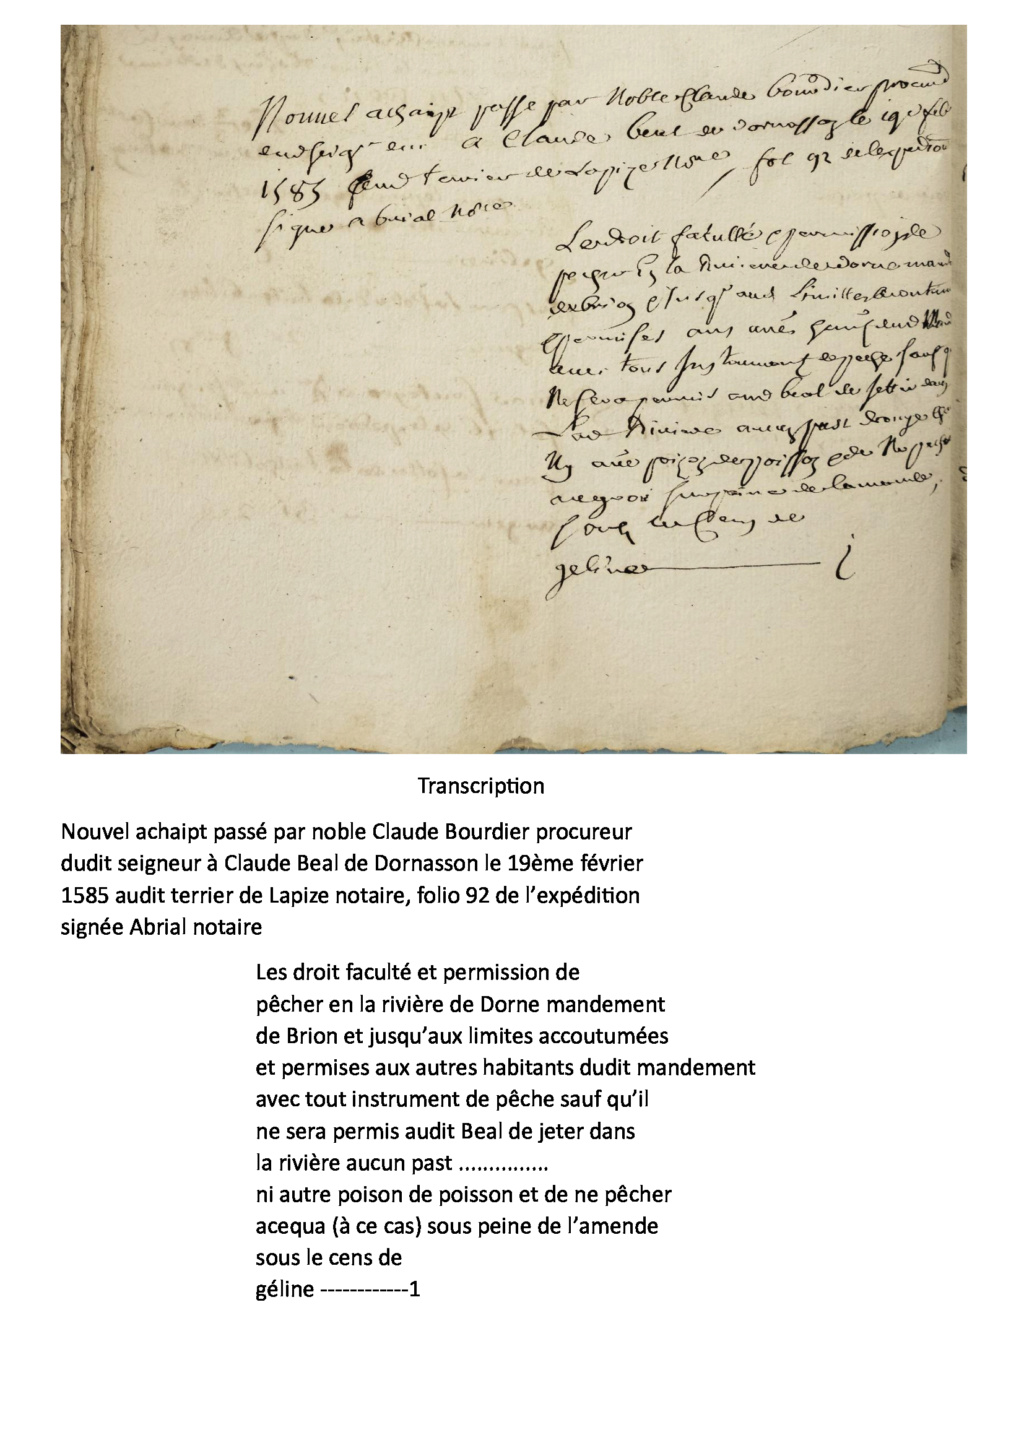 Nouvel achaipt passe par Noble Claude bourdier procur
dud seigr a Claude beal de dornasso le 19e feb
1585 aud terrier de Lapize Nore fol 92 de lexpedion
signe abrial Nore
Les droit faculte & permission de
pescher En la Riviere de dorne mand
de brion & Jusqu'aux Limittes acoutum
& permises aux autres habitans dud Mand
avec tous Instrument de peche sauf q
Ne sera permis aud beal de jetter dans
Lad Riviere aucun past
Ny autre poizon de poisson & de Ne pescher
sur peine de lamende,
soubz le Cens de
geline 1
Transcription
Nouvel achaipt passé par noble Claude Bourdier procureur
dudit seigneur à Claude Beal de Dornasson le 19ème février
1585 audit terrier de Lapize notaire, folio 92 de l’expédition
signée Abrial notaire
Les droit faculté et permission de
pêcher en la rivière de Dorne mandement
de Brion et jusqu’aux limites accoutumées
et permises aux autres habitants dudit mandement
avec tout instrument de pêche sauf qu’il
ne sera permis audit Beal de jeter dans
la rivière aucun past ...............
ni autre poison de poisson et de ne pêcher
acequa (à ce cas) sous peine de l’amende
sous le cens de
géline ------------1